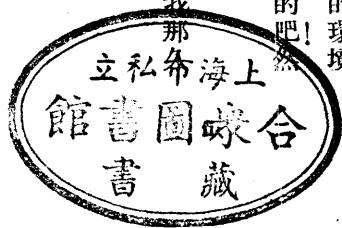 的環境
的吧!然
我那
上海市私立
合衆圖書館
藏書